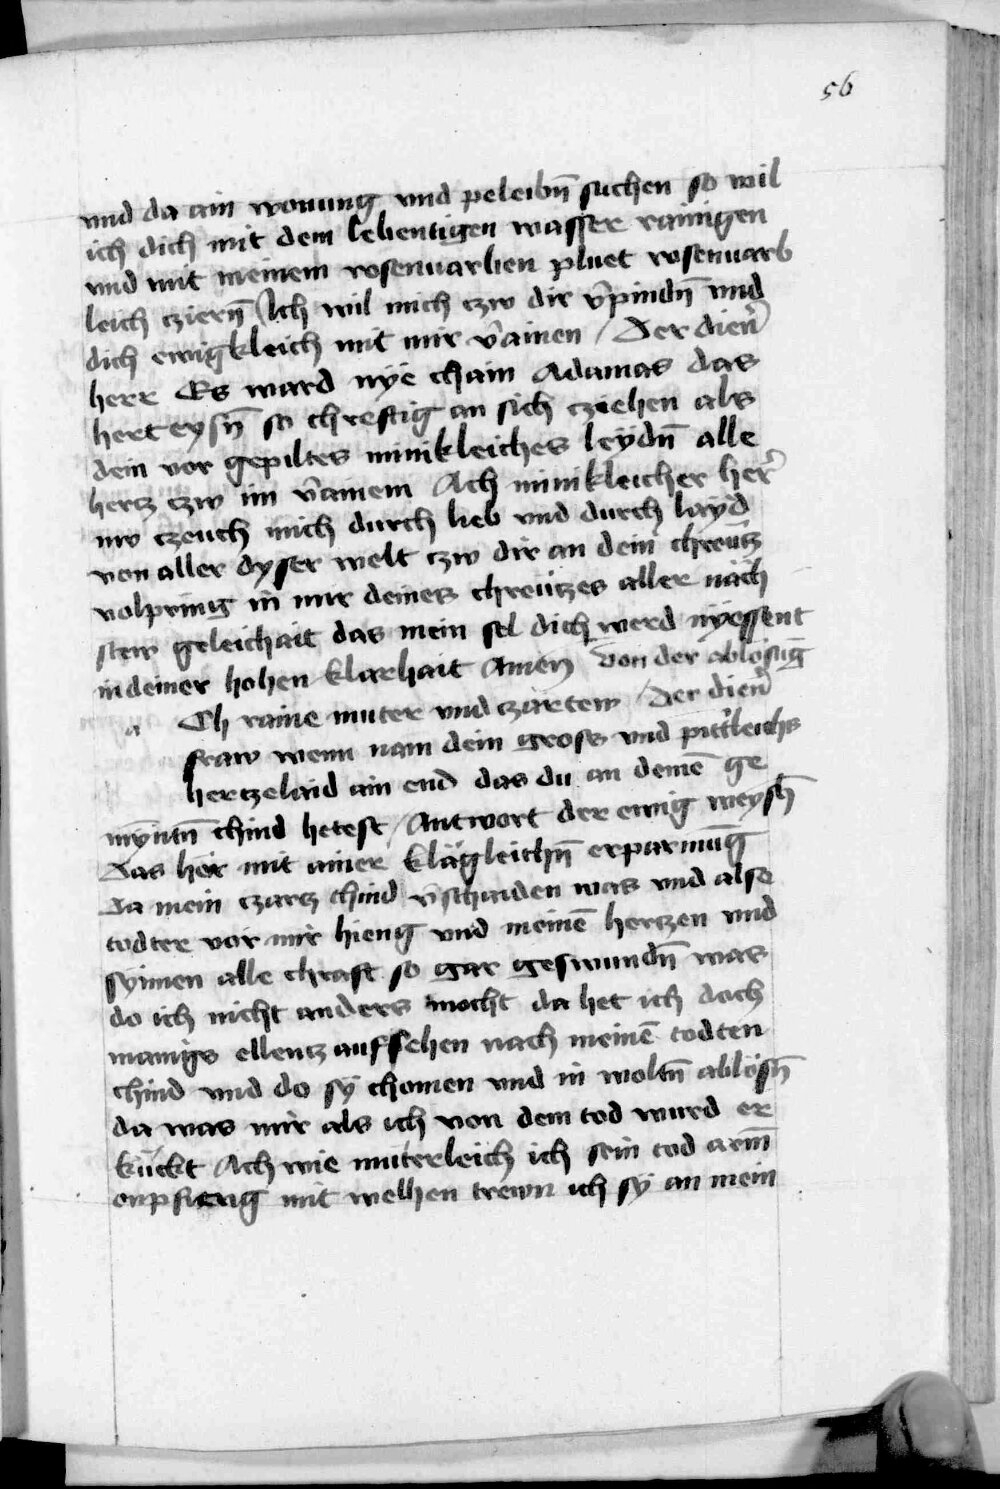 56
vnd da ain wonung vnd peleibn̄ suchen so wil
ich dich mit dem lebentigen wasser rainigen
vnd mit meinem rosenuarben pluet rosenuarb
leich cziern̄ Ich wil mich czw dir v̄pindn̄ vnd
dich ewigkleich mit mir v̄ainen / Der dien̄
herr Es ward nye chain Adamas das
hert eysn̄ so chreftig an sich cziehen als
dein vor gepiltes minikleiches leydn̄ alle
hertz czw im v̄ainem Ach minikleicher her̄
nw czeuch mich durch lieb vnd durch layd
von aller dyser welt czw dir an dein chreutz
volpring in mir deines chreutzes aller näch
stew geleichait das mein sel dich werd nyessent
in deiner hohen klarhait Amen Von der ablösūg
a Ch raine muter vnd czartew / Der dien̄
fraw wenn nam dein gross vnd pitt̄leichs
hertzelaid ain end das du an demē ge
myntn̄ chind hetest / Antwort der ewig weysh̄
Das hör mit ainer klägleichn̄ erparmūg
Da mein czartz chind v̄schaiden was vnd also
todter vor mir hieng vnd meinē hertzen vnd
synnen alle chraft so gar geswundn̄ was
do ich nicht anders mocht da het ich doch
manigs ellentz aufsehen nach meinē todten
chind vnd do sy chomen vnd in woltn̄ ablösn̄
da was mir als ich von dem tod wurd er
kückt Ach wie muterleich ich sein tod arm̄
enpfieng mit welhen trewn ich sy an mein